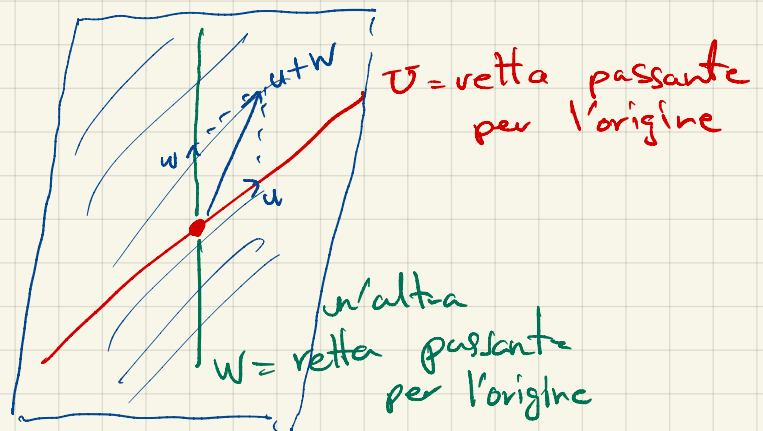 u+w
U = retta passante
per l'origine
w
u
un'altra
W = retta passante
per l'origine